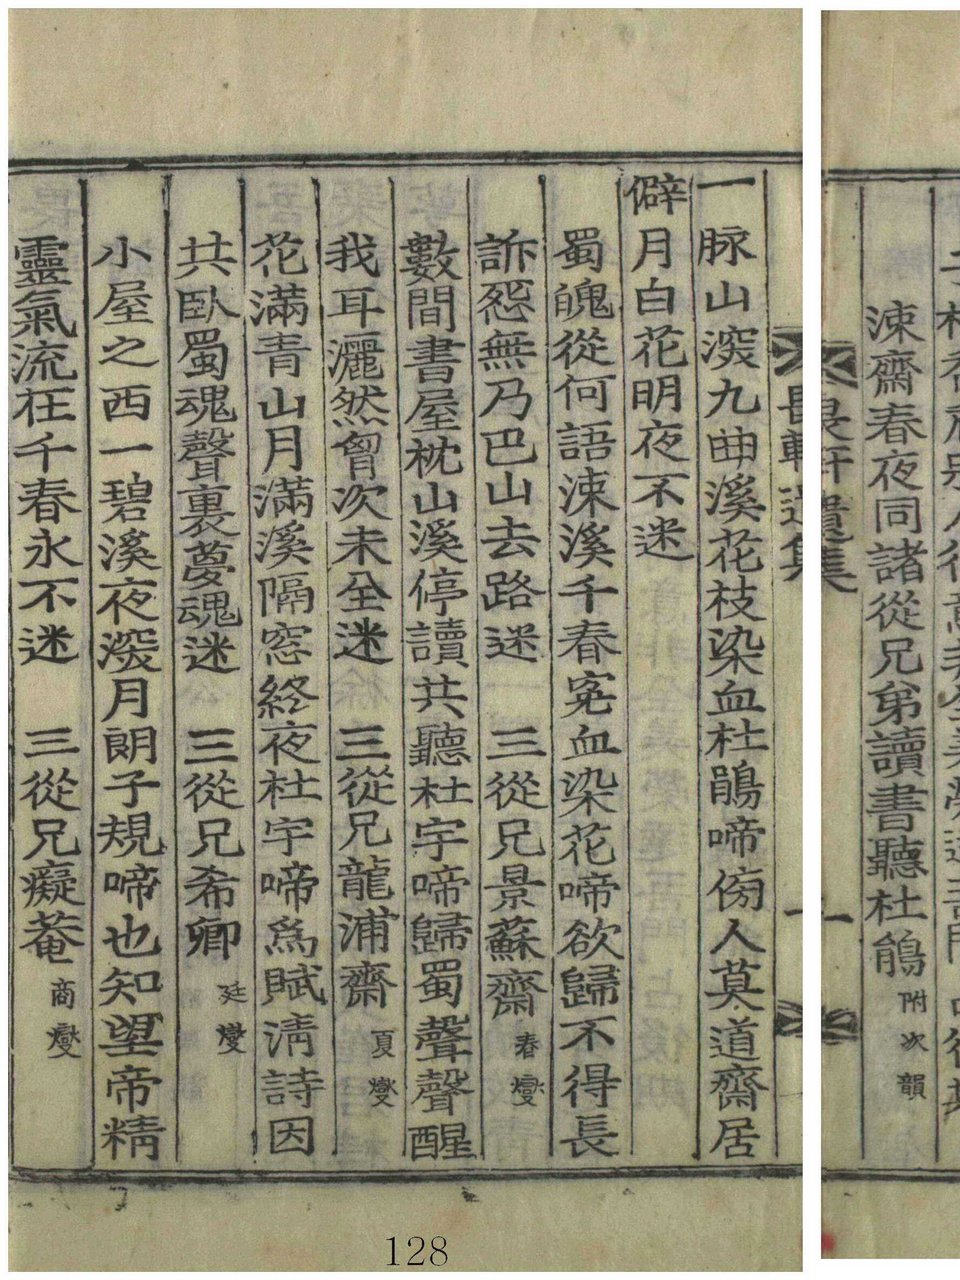 涑齋春夜同諸從兄弟讀書聽杜鵑 附次韻
畏軒遺集
一
一脉山深九曲溪花枝染血杜鵑啼傍人莫道齋居
僻月白花明夜不迷
蜀魄從何語涑溪千春寃血染花啼欲歸不得長
訴怨無乃巴山去路迷 三從兄景蘇齋 春燮
數間書屋枕山溪停讀共聽杜宇啼歸蜀聲聲醒
我耳灑然胷次未全迷 三從兄龍浦齋 夏燮
花滿青山月滿溪隔窓終夜杜宇啼爲賦清詩因
共臥蜀魂聲裏夢魂迷 三從兄希卿 廷燮
小屋之西一碧溪夜深月朗子規啼也知望帝精
靈氣流在千春永不迷 三從兄癡菴 商燮
128